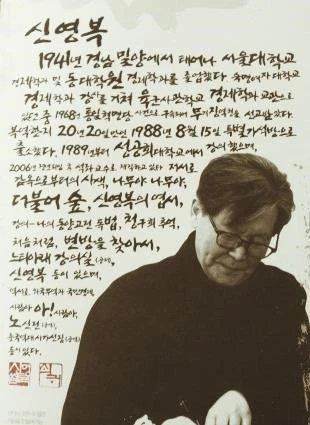 신영복
1941년 경남 밀양에서 태어나 서울대학교
경제학과 및 동대학원 경제학과를 졸업했다. 숙명여자대학교
경제학과 강사를 거쳐 육군사관학교 경제학과 교관으로
있던 중 1968년 통일혁명당 사건으로 구속되어 무기징역형을 선고받았다.
복역한지 20년 20일만인 1988년 8월 15일 특별가석방으로
출소했다. 1989년부터 성공회대학교에서 강의했으며,
2006년 정년퇴임 후 석좌교수로 재직하고 있다. 저서로
감옥으로부터의 사색, 나무야 나무야,
더불어 숲, 신영복의 엽서,
강의-나의 동양고전 독법, 청구회 추억,
처음처럼, 변방을 찾아서,
느티아래 강의실(공저),
신영복 등이 있으며,
역서로 외국무역과 국민경제,
사람아 아! 사람아,
노신전(공역),
중국역대시가선집(공역)
등이 있다.